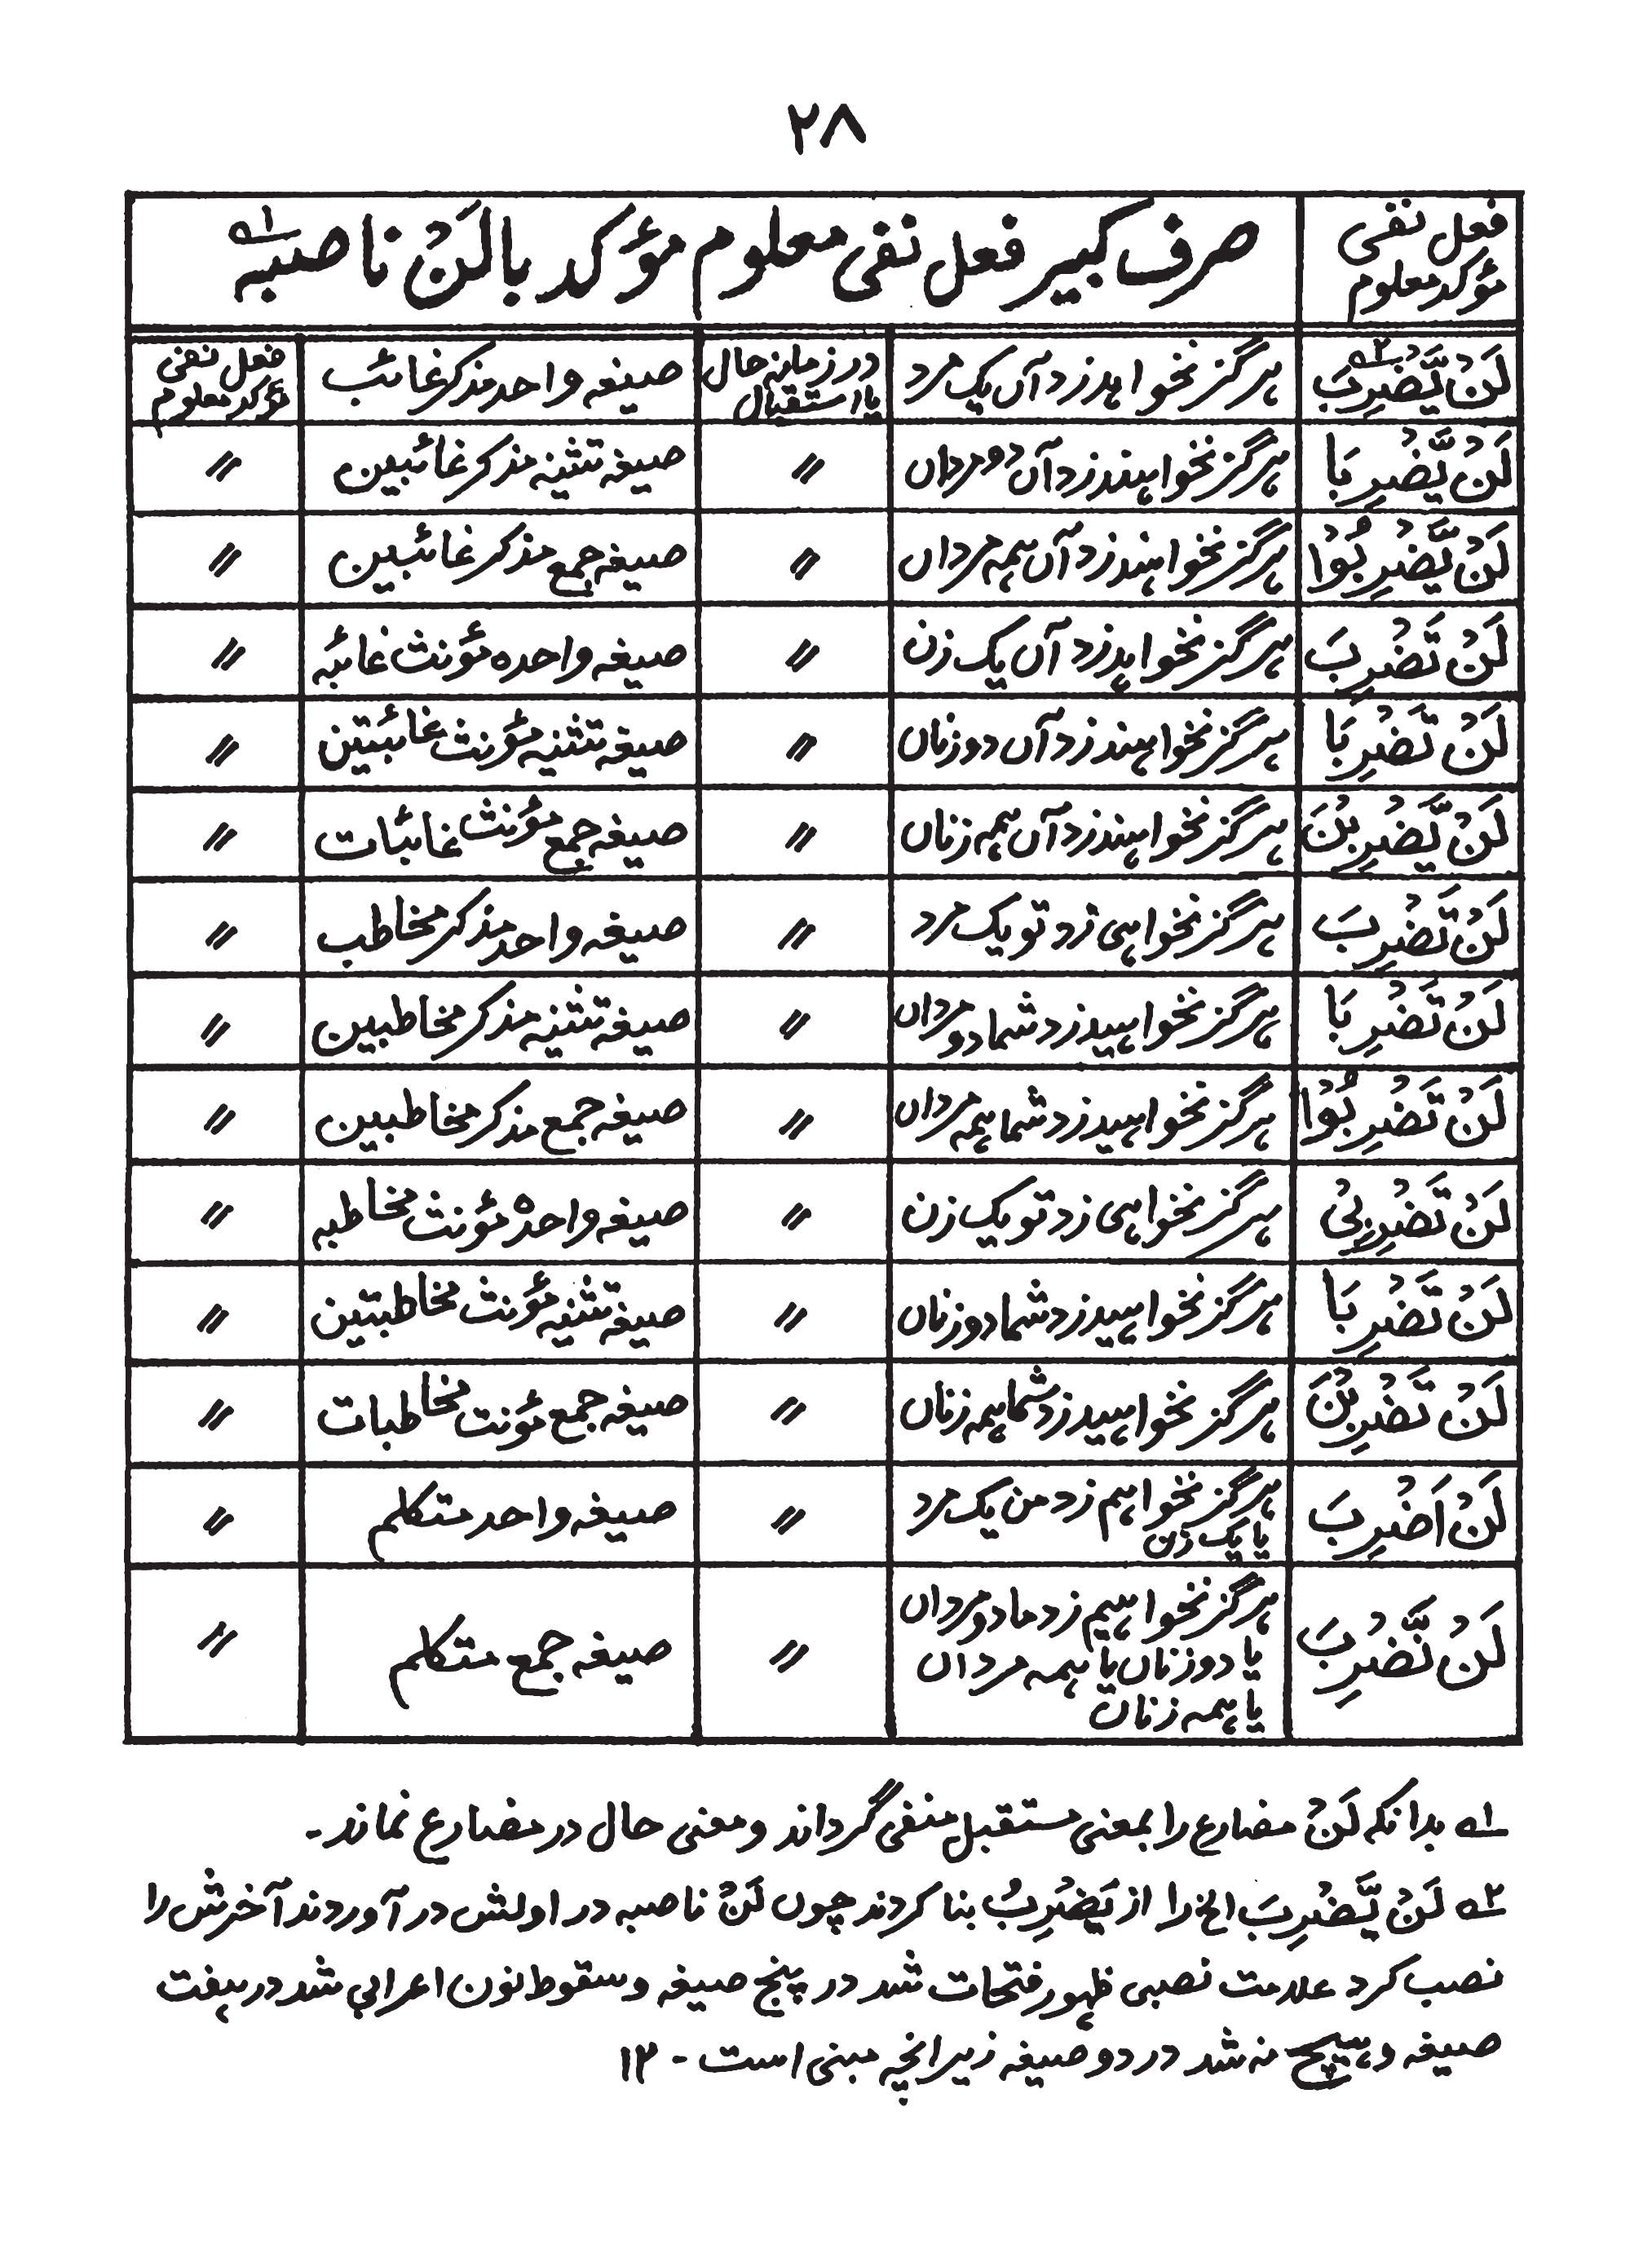 ۲۸
فعل نفی مؤکد معلوم | صرف کبیر فعل نفی معلوم مؤکد با لَنْ ناصبہ ؂۱
لَنْ يَّضْرِبَ ؂۲ | ہرگز نخواہد زد آں یک مرد | در زمانہ حال یا استقبال | صیغہ واحد مذکر غائب | فعل نفی مؤکد معلوم
لَنْ يَّضْرِبَا | ہرگز نخواہند زد آں دو مرداں | 〃 | صیغہ تثنیہ مذکر غائبین | 〃
لَنْ يَّضْرِبُوْا | ہرگز نخواہند زد آں ہمہ مرداں | 〃 | صیغہ جمع مذکر غائبین | 〃
لَنْ تَضْرِبَ | ہرگز نخواہد زد آں یک زن | 〃 | صیغہ واحدہ مؤنث غائبہ | 〃
لَنْ تَضْرِبَا | ہرگز نخواہند زد آں دو زناں | 〃 | صیغہ تثنیہ مؤنث غائبتین | 〃
لَنْ يَّضْرِبْنَ | ہرگز نخواہند زد آں ہمہ زناں | 〃 | صیغہ جمع مؤنث غائبات | 〃
لَنْ تَضْرِبَ | ہرگز نخواہی زد تو یک مرد | 〃 | صیغہ واحد مذکر مخاطب | 〃
لَنْ تَضْرِبَا | ہرگز نخواہید زد شما دو مرداں | 〃 | صیغہ تثنیہ مذکر مخاطبین | 〃
لَنْ تَضْرِبُوْا | ہرگز نخواہید زد شما ہمہ مرداں | 〃 | صیغہ جمع مذکر مخاطبین | 〃
لَنْ تَضْرِبِيْ | ہرگز نخواہی زد تو یک زن | 〃 | صیغہ واحدہ مؤنث مخاطبہ | 〃
لَنْ تَضْرِبَا | ہرگز نخواہید زد شما دو زناں | 〃 | صیغہ تثنیہ مؤنث مخاطبتین | 〃
لَنْ تَضْرِبْنَ | ہرگز نخواہید زد شما ہمہ زناں | 〃 | صیغہ جمع مؤنث مخاطبات | 〃
لَنْ اَضْرِبَ | ہرگز نخواہم زد من یک مرد یا یک زن | 〃 | صیغہ واحد متکلم | 〃
لَنْ نَّضْرِبَ | ہرگز نخواہیم زد ما دو مرداں یا دو زناں یا ہمہ مرداں یا ہمہ زناں | 〃 | صیغہ جمع متکلم | 〃
؂۱ بدانکہ لَنْ مضارع را بمعنی مستقبل منفی گرداند و معنی حال در مضارع نماند۔
؂۲ لَنْ يَّضْرِبَ الخ را از يَضْرِبُ بنا کردند چوں لَنْ ناصبہ در اولش در آوردند آخرش را
نصب کرد علامت نصبی ظہور فتحات شد در پنج صیغہ و سقوط نون اعرابی شد در ہفت
صیغہ و ہیچ نہ شد در دو صیغہ زیرانچہ مبنی است - ۱۲